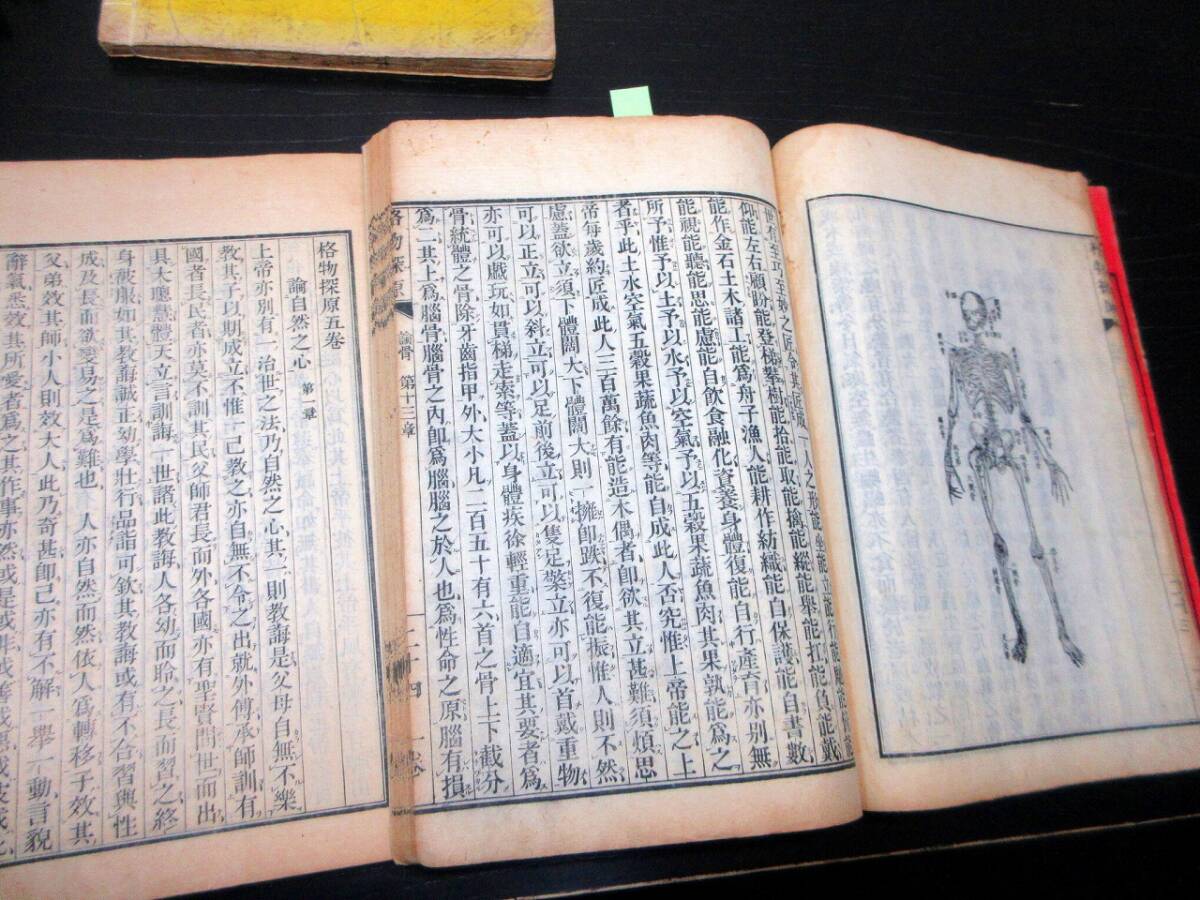 至巧至妙之匠令其匠成一人之形能坐能立能行能
仰能左右顧盼能登梯攀樹能拾能取能擒能縱能舉能扛能負能戴
能作金石土木諸工能爲舟子漁人能耕作紡織能自保護能自書數
能視能聽能思能慮能自飲食融化資養身體復能自行產育亦別無
所予惟予以土予以水予以空氣予以五穀果蔬魚肉其果孰能爲之
者乎此土水空氣五穀果蔬魚肉等能自成此人否究惟上帝能之上
帝每歲約匠成此人三百萬餘有能造木偶者卽欲其立甚難須煩思
慮蓋欲立須下體闊大下體闊大則一擁卽跌不復能振惟人則不然
可以正立可以斜立可以足前後立可以隻足立亦可以首戴重物
亦可以戲玩如貫梯走索等蓋以身體疾徐輕重能自適宜其要者爲
骨統體之骨除牙齒指甲外大小凡二百五十有六首之骨上下截分
爲二其上爲腦骨腦骨之內卽爲腦腦之於人也爲性命之原腦有損
格物探原 論骨 第十三章 二十四 一卷
格物探原五卷
論自然之心 第一章
上帝亦別有一治世之法乃自然之心其二則教誨是父母自無不樂
教其子以期成立不惟一己教之亦自無不命之出就外傅承師訓有
國者長民者亦莫不訓其民父師君長而外各國亦有聖賢間世而出
具大聰慧體天立言訓誨一世諸此教誨人各幼而聆之長而習之終
身被服如其教誨誠正幼學壯行品詣可欽其教誨或有不合習與性
成及長而欲變易之是爲難也人亦自然而然依人爲轉移子效其
父弟效其師小人則效大人此乃奇甚卽己亦有不解一舉一動言貌
辭氣悉效其所愛者爲之其作事亦然或是或非或善或惡或